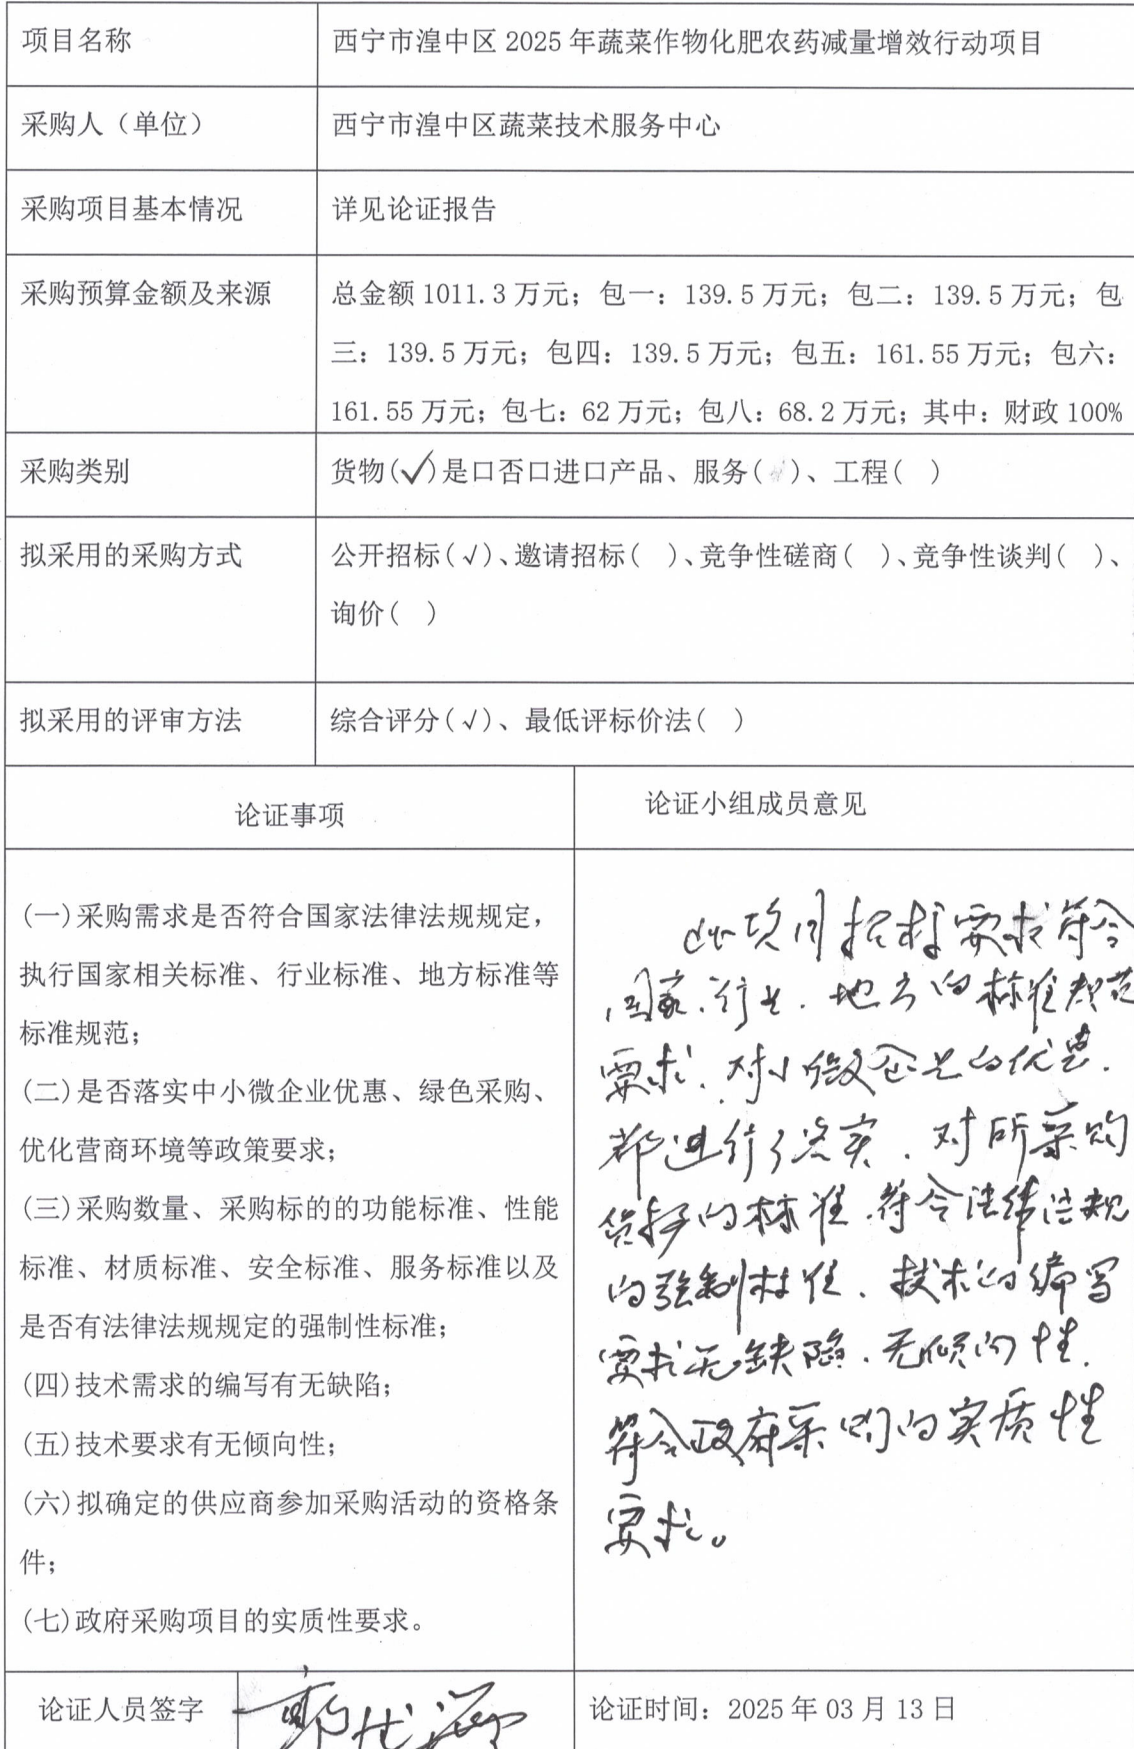 项目名称
西宁市湟中区 2025 年蔬菜作物化肥农药减量增效行动项目
采购人（单位）
西宁市湟中区蔬菜技术服务中心
采购项目基本情况
详见论证报告
采购预算金额及来源
总金额 1011.3 万元；包一：139.5 万元；包二：139.5 万元；包
三：139.5 万元；包四：139.5 万元；包五：161.55 万元；包六：
161.55 万元；包七：62 万元；包八：68.2 万元；其中：财政 100%
采购类别
货物(✓)是口否口进口产品、服务( )、工程( )
拟采用的采购方式
公开招标(√)、邀请招标( )、竞争性磋商( )、竞争性谈判( )、
询价( )
拟采用的评审方法
综合评分(√)、最低评标价法( )
论证事项
论证小组成员意见
(一)采购需求是否符合国家法律法规规定，
执行国家相关标准、行业标准、地方标准等
标准规范；
(二)是否落实中小微企业优惠、绿色采购、
优化营商环境等政策要求；
(三)采购数量、采购标的的功能标准、性能
标准、材质标准、安全标准、服务标准以及
是否有法律法规规定的强制性标准；
(四)技术需求的编写有无缺陷；
(五)技术要求有无倾向性；
(六)拟确定的供应商参加采购活动的资格条
件；
(七)政府采购项目的实质性要求。
此项目招标要求符合
国家.行业.地方的标准规范
要求.对小微企业的优惠.
都进行了落实.对所采购
的标准.符合法律法规
的强制标准.技术的编写
要求无缺陷.无倾向性.
符合政府采购的实质性
要求。
论证人员签字
论证时间：2025 年 03 月 13 日